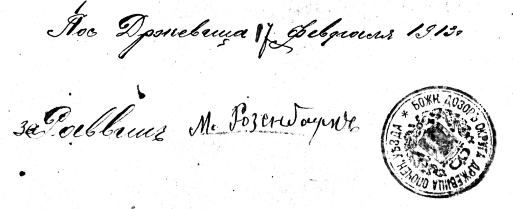 Пос Држевица 17 февраля 1913 г.
за Раввинъ М. Розенбаумъ
* БОЖН. ДОЗОРЪ ОКРУГА ДРЖЕВИЦА ОПОЧЕН. УѢЗДА